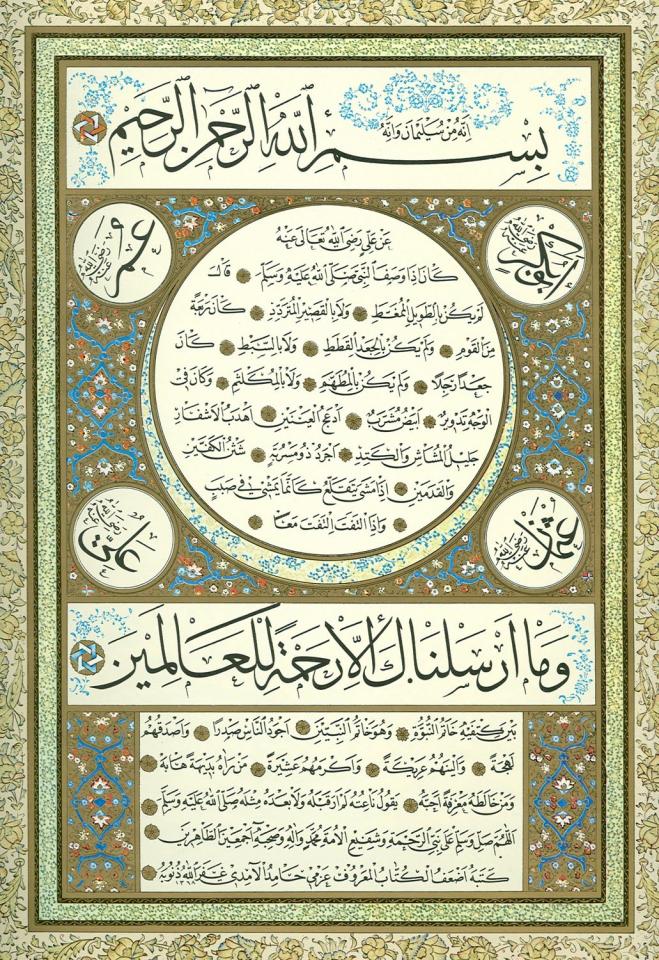 إنه من سليمان وإنه
بسم الله الرحمن الرحيم
أبو بكر رضي الله عنه
عمر رضي الله عنه
عن علي رضي الله تعالى عنه
كان إذا وصف النبي صلى الله عليه وسلم قال
لم يكن بالطويل الممغط ولا بالقصير المتردد كان ربعة
من القوم ولم يكن بالجعد القطط ولا بالسبط كان
جعدا رجلا ولم يكن بالمطهم ولا بالمكلثم وكان في
الوجه تدوير أبيض مشرب أدعج العينين أهدب الأشفار
جليل المشاش والكتد أجرد ذو مسربة شثن الكفين
والقدمين إذا مشى يتقلع كأنما يمشي في صبب
وإذا التفت التفت معا
عثمن رضي الله عنه
علي رضي الله عنه
وما أرسلناك إلا رحمة للعالمين
بين كتفيه خاتم النبوة وهو خاتم النبيين أجود الناس صدرا وأصدقهم
لهجة وألينهم عريكة وأكرمهم عشيرة من رآه بديهة هابه
ومن خالطه معرفة أحبه يقول ناعته لم أر قبله ولا بعده مثله صلى الله عليه وسلم
اللهم صل وسلم على نبي الرحمة وشفيع الأمة محمد وآله وصحبه أجمعين الطاهرين
كتبه أضعف الكتاب المعروف عزمي حامد الآمدي غفر الله ذنوبه